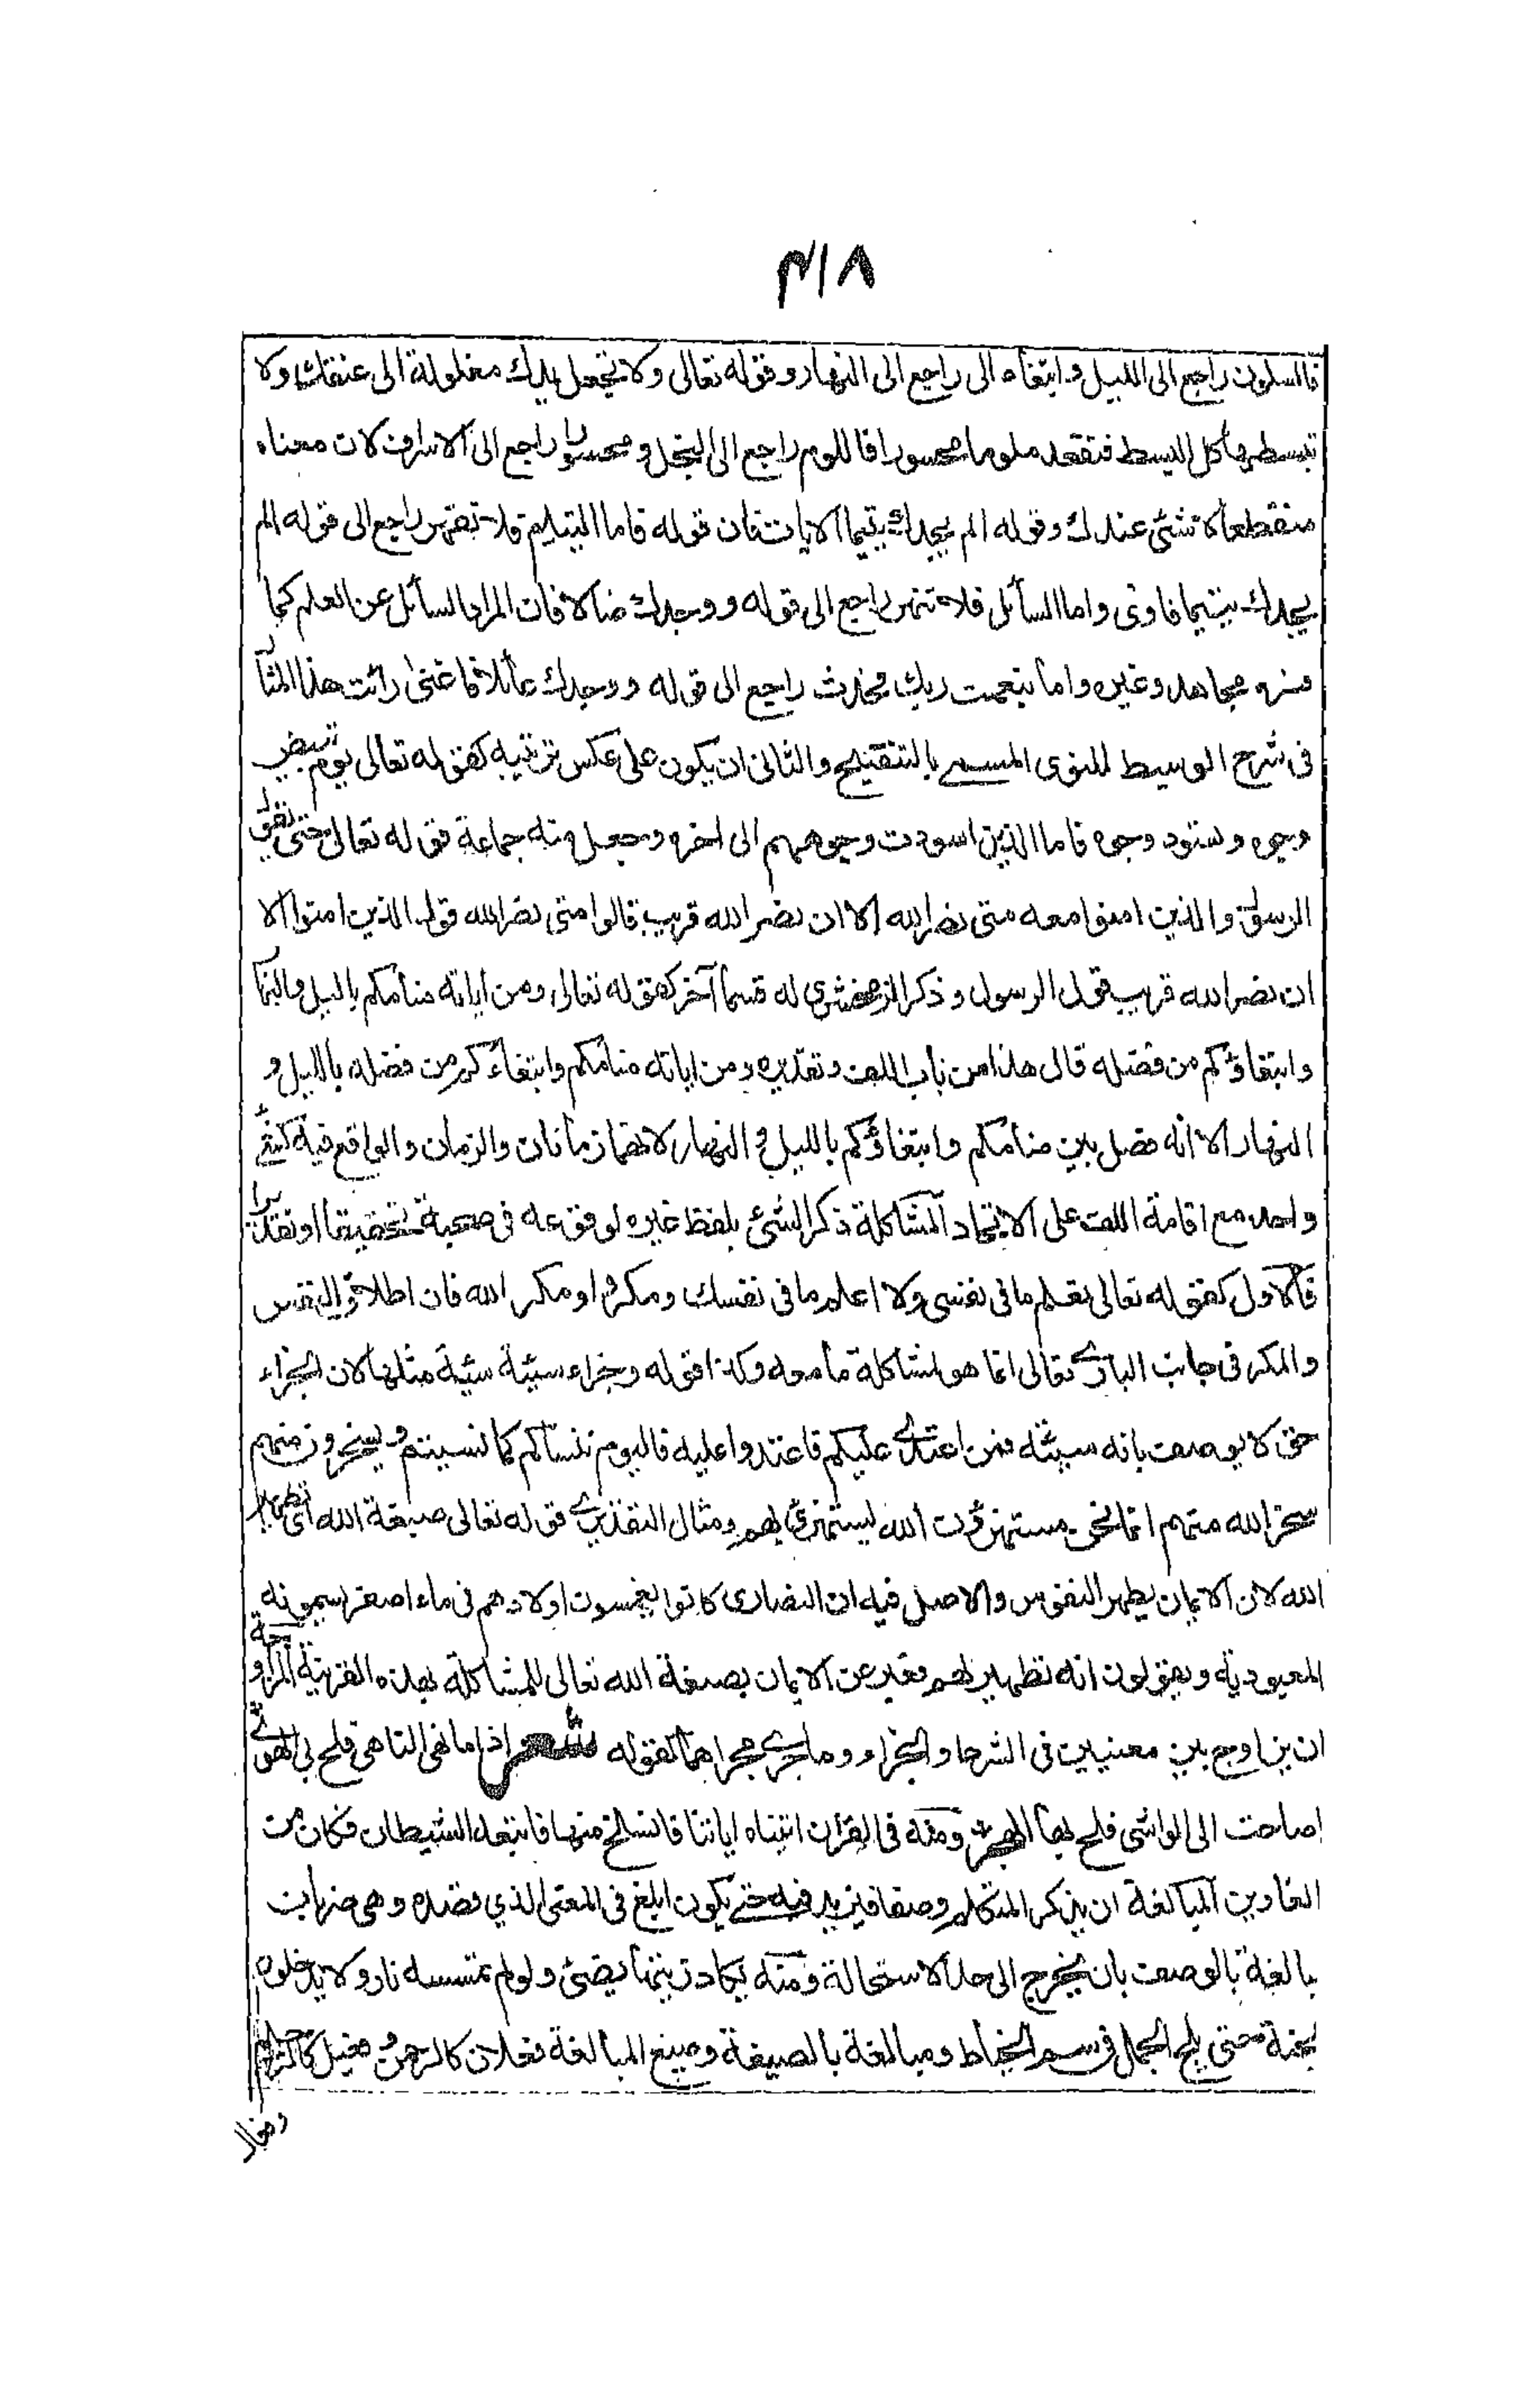 ٣١٨
فالسكون راجع الى الليل وابتغاء الى راجع الى النهار وقوله تعالى ولا تجعل يدك مغلولة الى عنقك ولا
تبسطها كل البسط فتقعد ملوما محسورا فاللوم راجع الى البخل ومحسورا راجع الى الاسراف لان معناه
منقطعا لا شئ عندك وقوله الم يجدك يتيما الايات فان قوله فاما اليتيم فلا تقهر راجع الى قوله الم
يجدك يتيما فاوى واما السائل فلا تنهر راجع الى قوله ووجدك ضالا فان المراد السائل عن العلم كما
فسره مجاهد وغيره واما بنعمت ربك فحدث راجع الى قوله ووجدك عائلا فاغنى رائت هذا المثا
فى شرح الوسيط للنوى المسمى بالتنقيح والثانى ان يكون على عكس ترتيبه كقوله تعالى يوم تبيض
وجوه وتسود وجوه فاما الذين اسودت وجوههم الى اخره وجعل منه جماعة قوله تعالى حتى يقول
الرسول والذين امنوا معه متى نصر الله الا ان نصر الله قريب قالوا متى نصر الله قول الذين امنوا الا
ان نصر الله قريب قول الرسول وذكر الزمخشرى له قسما آخر كقوله تعالى ومن اياته منامكم بالليل والنها
وابتغاؤكم من فضله قال هذا من باب اللف وتقديره ومن اياته منامكم وابتغاءكم من فضله بالليل و
النهار الا انه فصل بين منامكم وابتغاؤكم بالليل و النهار لانهما زمانان والزمان والواقع فيه كشئ
واحد مع اقامة اللف على الاتحاد المشاكلة ذكر الشئ بلفظ غيره لوقوعه فى صحبته تحقيقا او تقديرا
فالاول كقوله تعالى تعلم ما فى نفسى ولا اعلم ما فى نفسك ومكروا ومكر الله فان اطلاق النفس
والمكر فى جانب البارى تعالى انما هو لمشاكلة ما معه وكذا قوله وجزاء سيئة سيئة مثلها لان الجزاء
حق لا يوصف بانه سيئه فمن اعتدى عليكم فاعتدوا عليه فاليوم ننساكم كما نسيتم ويسخرون منهم
سخر الله منهم انما نحن مستهزؤن الله يستهزئ بهم ومثال التقديرى قوله تعالى صبغة الله اى تطهير
الله لان الايمان يطهر النفوس والاصل فيه ان النصارى كانوا يغمسون اولادهم فى ماء اصفر يسمونه
المعبودية ويقولون انه تطهير لهم فعبر عن الايمان بصبغة الله تعالى للمشاكلة بهذه القرينة المزاوجة
ان يزاوج بين معنيين فى الشرط والجزاء وما جرى مجراهما كقوله شعر اذا ما نهى الناهى فلج بى الهوى
اصاخت الى الواشى فلج بها الهجر ومنه فى القران اتيناه اياتنا فانسلخ منها فاتبعه الشيطان فكان من
الغاوين المبالغة ان يذكر المتكلم وصفا فيزيد فيه حتى يكون ابلغ فى المعنى الذي قصده وهى ضربان
بالغة بالوصف بان يخرج الى حد الاستحالة ومنه يكاد زيتها يضئ ولو لم تمسسه نار ولا يدخلون
لجنة حتى يلج الجمل فى سم الخياط ومبالغة بالصيغة وصيغ المبالغة فعلان كالرحمن وفعيل كالرحيم
وفعال